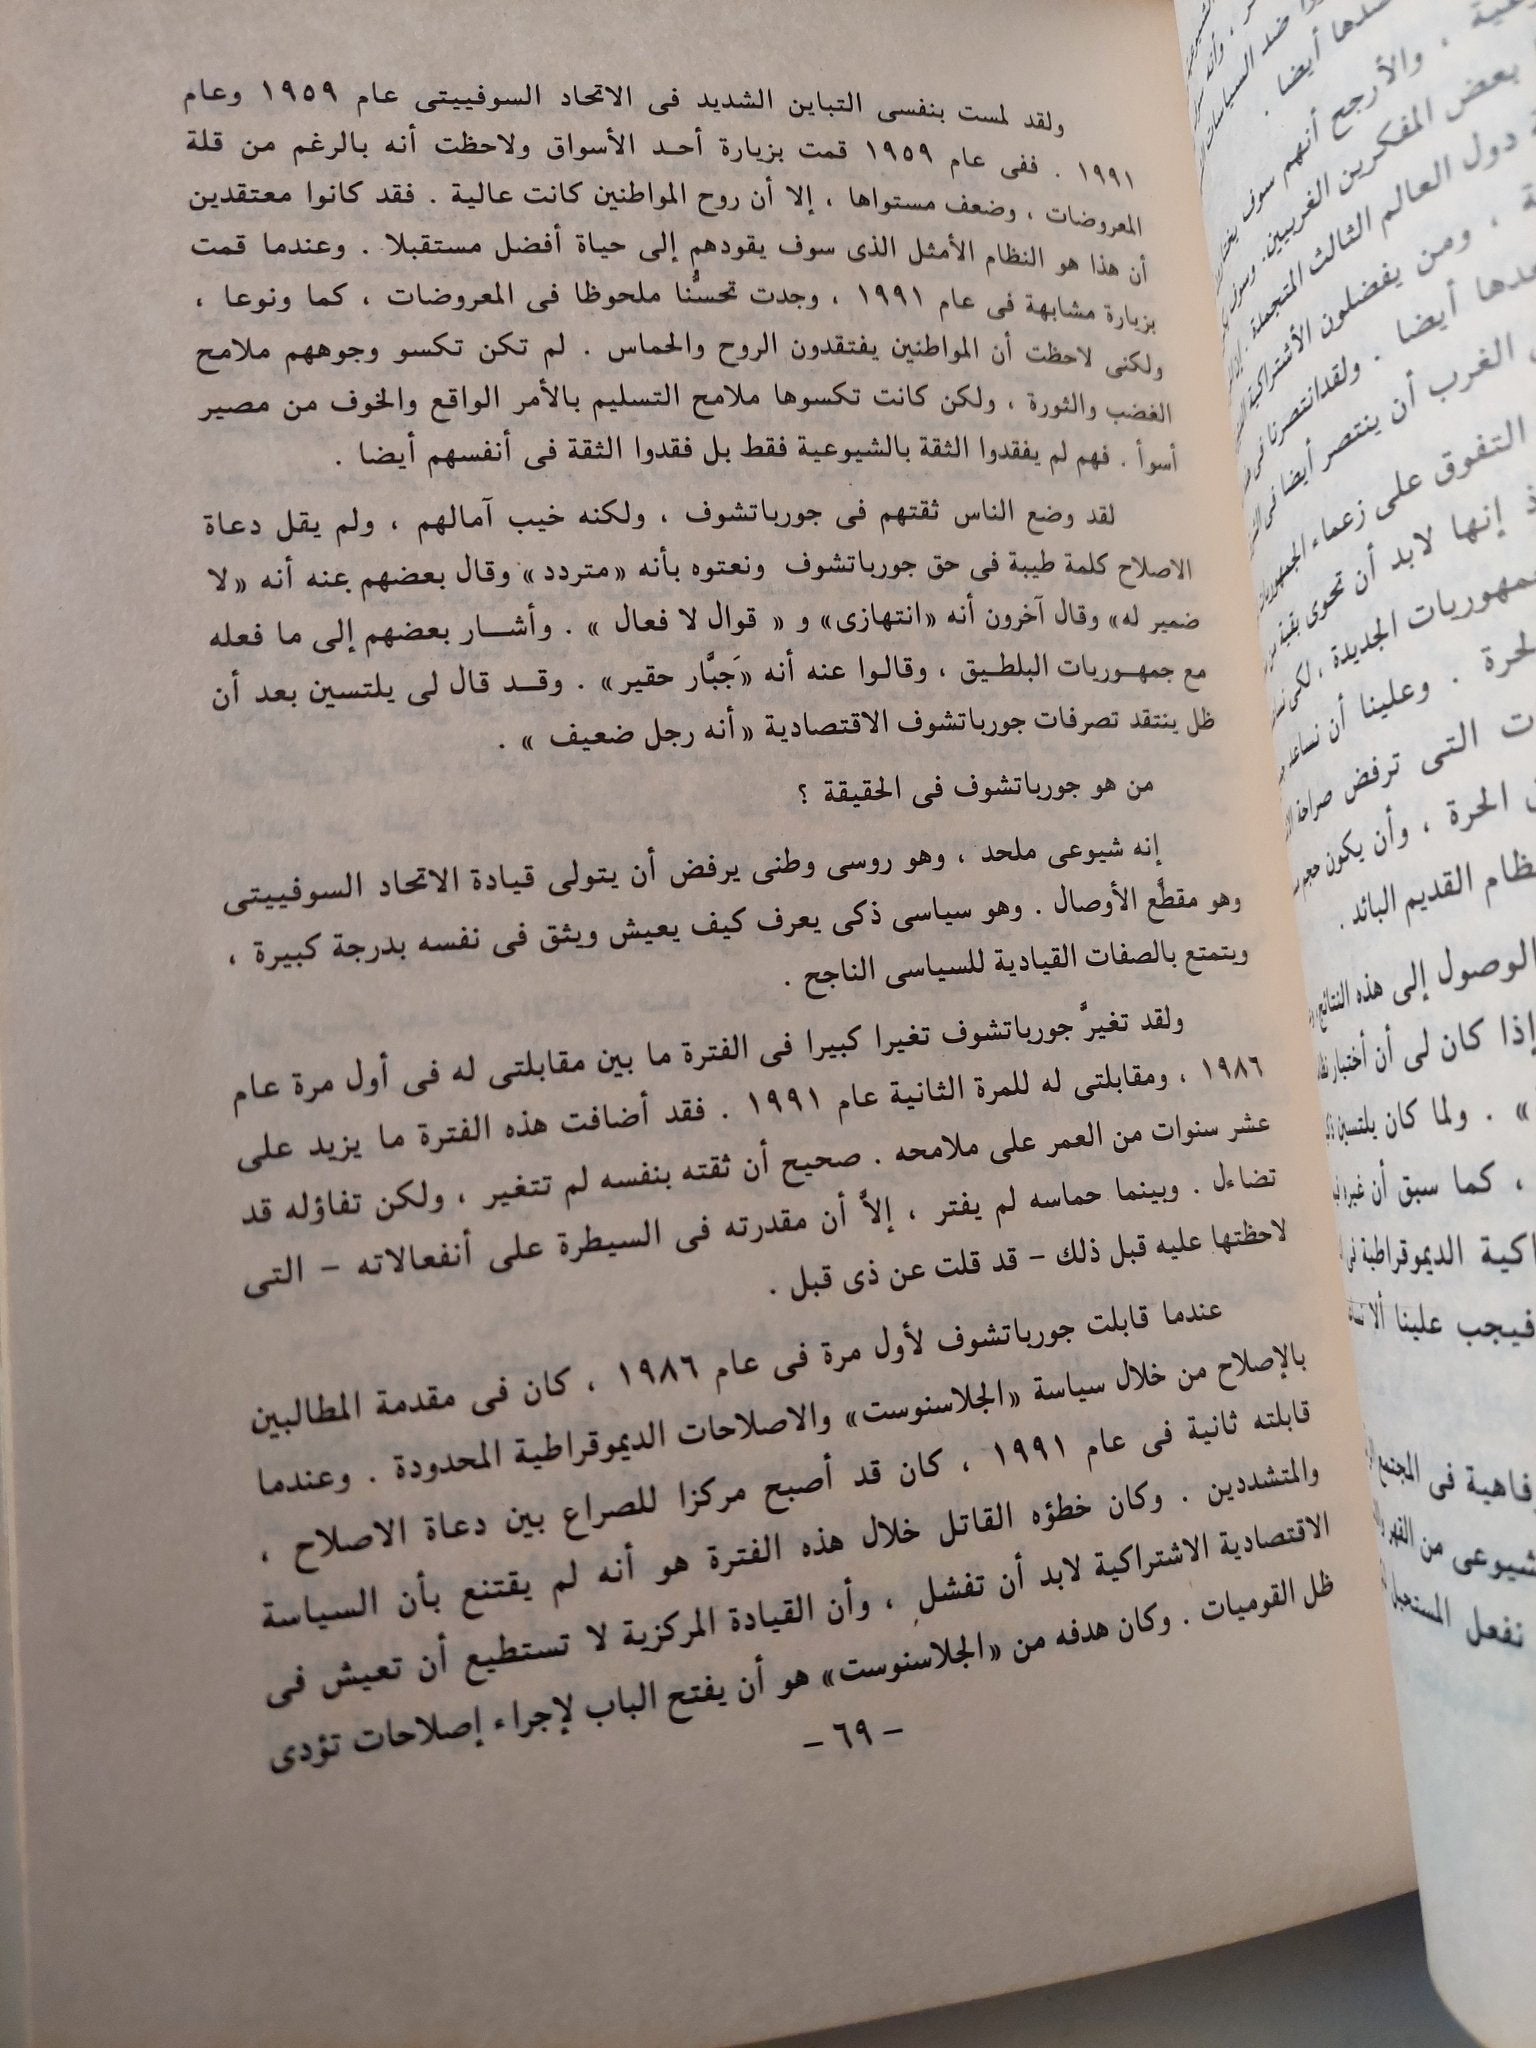 ولقد لمست بنفسى التباين الشديد فى الاتحاد السوفييتى عام ١٩٥٩ وعام
١٩٩١ . ففى عام ١٩٥٩ قمت بزيارة أحد الأسواق ولاحظت أنه بالرغم من قلة
المعروضات ، وضعف مستواها ، إلا أن روح المواطنين كانت عالية . فقد كانوا معتقدين
أن هذا هو النظام الأمثل الذى سوف يقودهم إلى حياة أفضل مستقبلا . وعندما قمت
بزيارة مشابهة فى عام ١٩٩١ ، وجدت تحسُّنا ملحوظا فى المعروضات ، كما ونوعا ،
ولكنى لاحظت أن المواطنين يفتقدون الروح والحماس . لم تكن تكسو وجوههم ملامح
الغضب والثورة ، ولكن كانت تكسوها ملامح التسليم بالأمر الواقع والخوف من مصير
أسوأ . فهم لم يفقدوا الثقة بالشيوعية فقط بل فقدوا الثقة فى أنفسهم أيضا .
لقد وضع الناس ثقتهم فى جورباتشوف ، ولكنه خيب آمالهم ، ولم يقل دعاة
الاصلاح كلمة طيبة فى حق جورباتشوف ونعتوه بأنه «متردد» وقال بعضهم عنه أنه «لا
ضمير له» وقال آخرون أنه «انتهازى» و « قوال لا فعال » . وأشار بعضهم إلى ما فعله
مع جمهوريات البلطيق ، وقالوا عنه أنه «جَبَّار حقير» . وقد قال لى يلتسين بعد أن
ظل ينتقد تصرفات جورباتشوف الاقتصادية «أنه رجل ضعيف » .
من هو جورباتشوف فى الحقيقة ؟
إنه شيوعى ملحد ، وهو روسى وطنى يرفض أن يتولى قيادة الاتحاد السوفييتى
وهو مقطَّع الأوصال . وهو سياسى ذكى يعرف كيف يعيش ويثق فى نفسه بدرجة كبيرة ،
ويتمتع بالصفات القيادية للسياسى الناجح .
ولقد تغيرَّ جورباتشوف تغيرا كبيرا فى الفترة ما بين مقابلتى له فى أول مرة عام
١٩٨٦ ، ومقابلتى له للمرة الثانية عام ١٩٩١ . فقد أضافت هذه الفترة ما يزيد على
عشر سنوات من العمر على ملامحه . صحيح أن ثقته بنفسه لم تتغير ، ولكن تفاؤله قد
تضاءل . وبينما حماسه لم يفتر ، إلاَّ أن مقدرته فى السيطرة على أنفعالاته – التى
لاحظتها عليه قبل ذلك – قد قلت عن ذى قبل .
عندما قابلت جورباتشوف لأول مرة فى عام ١٩٨٦ ، كان فى مقدمة المطالبين
بالإصلاح من خلال سياسة «الجلاسنوست» والاصلاحات الديموقراطية المحدودة . وعندما
قابلته ثانية فى عام ١٩٩١ ، كان قد أصبح مركزا للصراع بين دعاة الاصلاح ،
والمتشددين . وكان خطؤه القاتل خلال هذه الفترة هو أنه لم يقتنع بأن السياسة
الاقتصادية الاشتراكية لابد أن تفشل ، وأن القيادة المركزية لا تستطيع أن تعيش فى
ظل القوميات . وكان هدفه من «الجلاسنوست» هو أن يفتح الباب لإجراء إصلاحات تؤدى
– ٦٩ –
ضد السياسات
، والأرجح أنهم سوف
بعض المفكرين الغربيين. وسوف
دول العالم الثالث المتجملة
، ومن يفضلون الأشتراكية
أيضا . ولقدانتصرنا فى
الغرب أن ينتصر أيضا فى
التفوق على زعماء
إنها لابد أن تحوى بقية
الجديدة ، لكى
الحرة . وعلينا أن نساعد
التى ترفض صراحة
الحرة ، وأن يكون حجم
القديم البائد .
الوصول إلى هذه النتائج
إذا كان لى أن أختبار
» . ولما كان يلتسين
، كما سبق أن غيره
الديموقراطية فى
فيجب علينا ألا
فى المجتمع
من القهر
نفعل المستحيل